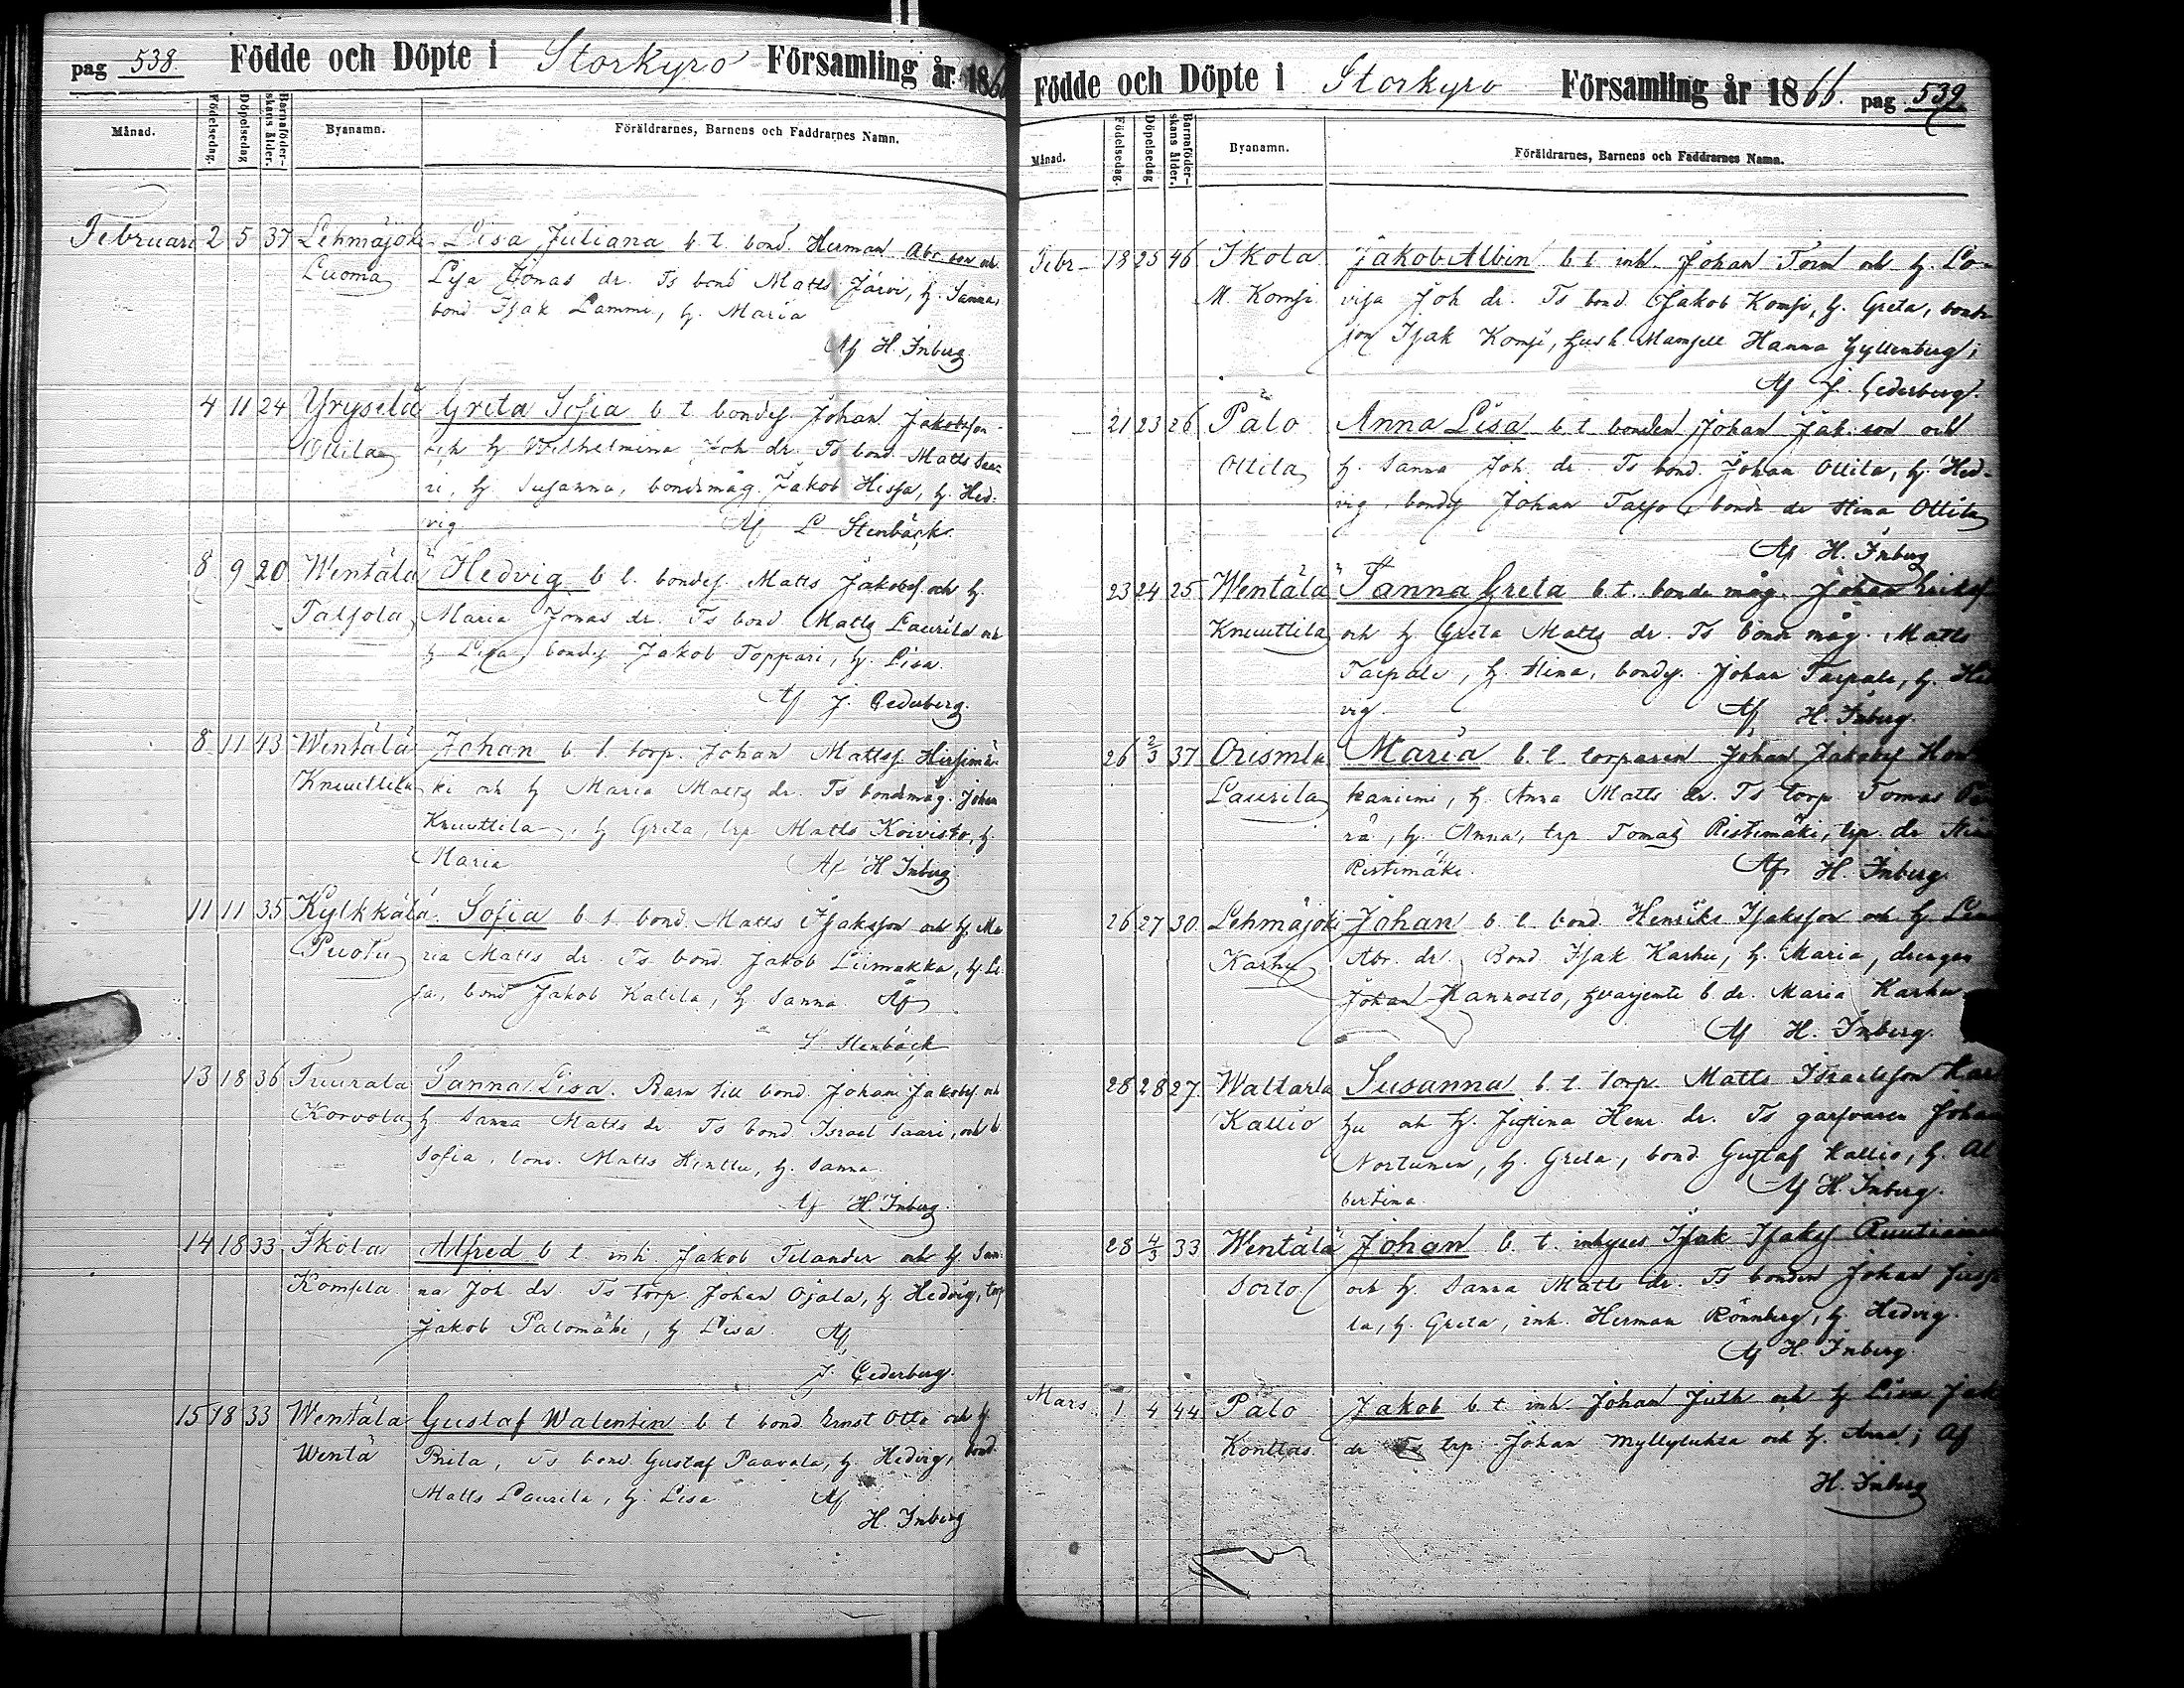 pag 538. Födde och Döpte i Storkyro Församling år 1866
Månad. Födelsedag. Döpelsedag Barnaföder-skans ålder. Byanamn. Föräldrarnes, Barnens och Faddrarnes Namn.
Februari 2 5 37 Lehmäjoki Lisa Juliana b. t. bond. Herman Abr. son och
Luoma Lisa Jonas dr. Ts bond Matts Järvi, h. Sanna,
bond Isak Lammi, h. Maria
Af H. Inberg
4 11 24 Yryselä Greta Sofia b t bondes. Johan Jakobsson
Ollila och h Wilhelmina Joh dr. Ts bond. Matts Saa-
ri, h. Susanna, bondemåg. Jakob Hissa, h. Hed-
vig Af L Stenbäck.
8 9 20 Wentälä Hedvig b t. bondes. Matts Jakobs. och h.
Talsola Maria Jonas dr. Ts bond Matts Laurila och
h Lisa, bondes Jakob Toppari, h. Lisa.
Af J. Cederberg.
8 11 43 Wentälä Johan b. t. torp. Johan Mattss. Hirsimä-
Knuuttila ki och h Maria Matts dr. Ts bondemåg. Johan
Knuuttila, h Greta, trp Matts Koivisto, h.
Maria Af H Inberg
11 11 35 Kylkkälä Sofia b. t. bond. Matts Isaksson och h. Ma
Puotu ria Matts dr. Ts bond Jakob Liimakka, h. Li
sa, bond Jakob Katila, h. Sanna. Af
L. Stenbäck
13 18 36 Tuurala Sanna Lisa. Barn till bond. Johan Jakobs. och
Korvola h. Sanna Matts dr Ts bond. Israel Saari, och h
Sofia, bond. Matts Hinttu, h. Sanna.
Af H. Inberg.
14 18 33 Ikola Alfred b t. inh. Jakob Telander och h. San-
Kompla na Joh. dr. Ts torp. Johan Ojala, h. Hedvig, torp
Jakob Palomäki, h Lisa. Af
J. Cederberg.
15 18 33 Wentälä Gustaf Walentin b t bond Ernst Otto och h
Wentä Brita, Ts bond. Gustaf Paavola, h. Hedvig, bond.
Matts Laurila, h. Lisa Af
H. Inberg
Födde och Döpte i Storkyro Församling år 1866. pag 539.
Månad. Födelsedag. Döpelsedag Barnaföder-skans ålder. Byanamn. Föräldrarnes, Barnens och Faddrarnes Namn.
Febr 18 25 46 Ikola Jakob Albin b t inh. Johan Torn och h. Lo-
M. Komsi visa Joh dr. Ts bond. Jakob Komsi, h. Greta, bonde
son Isak Komsi, hush. Mamsell Hanna Gyllenberg;
Af J. Cederberg.
21 23 26 Palo Anna Lisa b. t. bonden Johan Jak. son och
Ollila h. Sanna Joh. dr. Ts bond. Johan Ollila, h. Hed-
vig, bondes Johan Talso, bonde dr Stina Ollila
Af H. Inberg
23 24 25 Wentälä Sanna Greta b t. bonde måg. Johan Eriks
Knuuttila och h Greta Matts dr. Ts bonde måg. Matts
Taipale, h. Stina, bondes. Johan Taipale, h. Hed
vig. Af H. Inberg.
26 2/3 37 Orismla Maria b. t. torparen Johan Jakobss
Laurila kaniemi, h. Anna Matts dr. Ts torp. Tomas
rä, h. Anna, trp Tomas Ristimäki, trp. dr Stina
Ristimäki. Af H. Inberg
26 27 30 Lehmäjoki Johan b t bond. Henrik Isaksson och h.
Karhu Abr. dr. Bond Isak Karhu, h. Maria, drengen
Johan Kannosto, hvarjemte b. dr. Maria Karhu.
Af H. Inberg.
28 28 27. Waltarla Susanna b. t. torp. Matts Israelsson Kar
Kallio hu och h. Justina Henr. dr. Ts garfvaren Johan
Nortunen, h. Greta, bond. Gustaf Kallio, h. Al
bertina. Af H. Inberg.
28 4/3 33 Wentälä Johan b. t. inhyses Isak Isakss
Sorto och h. Sanna Matts dr. Ts bonden Johan Jussi
la, h. Greta, inh. Herman Rönnberg, h. Hedvig.
Af H. Inberg.
Mars 1 4 44 Palo Jakob b. t. inh. Johan Juth och h Lisa Jak
Konttas dr Ts trp Johan Myllyluhta och h. Anna; Af
H. Inberg